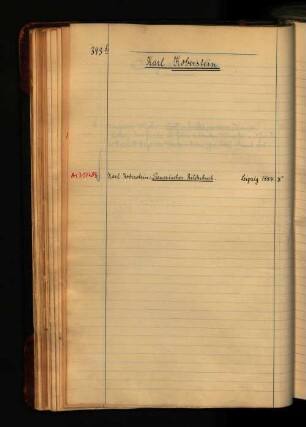 393b
Karl Koberstein
Karl Koberstein: Preussisches Bilderbuch Leipzig 1887. 8°